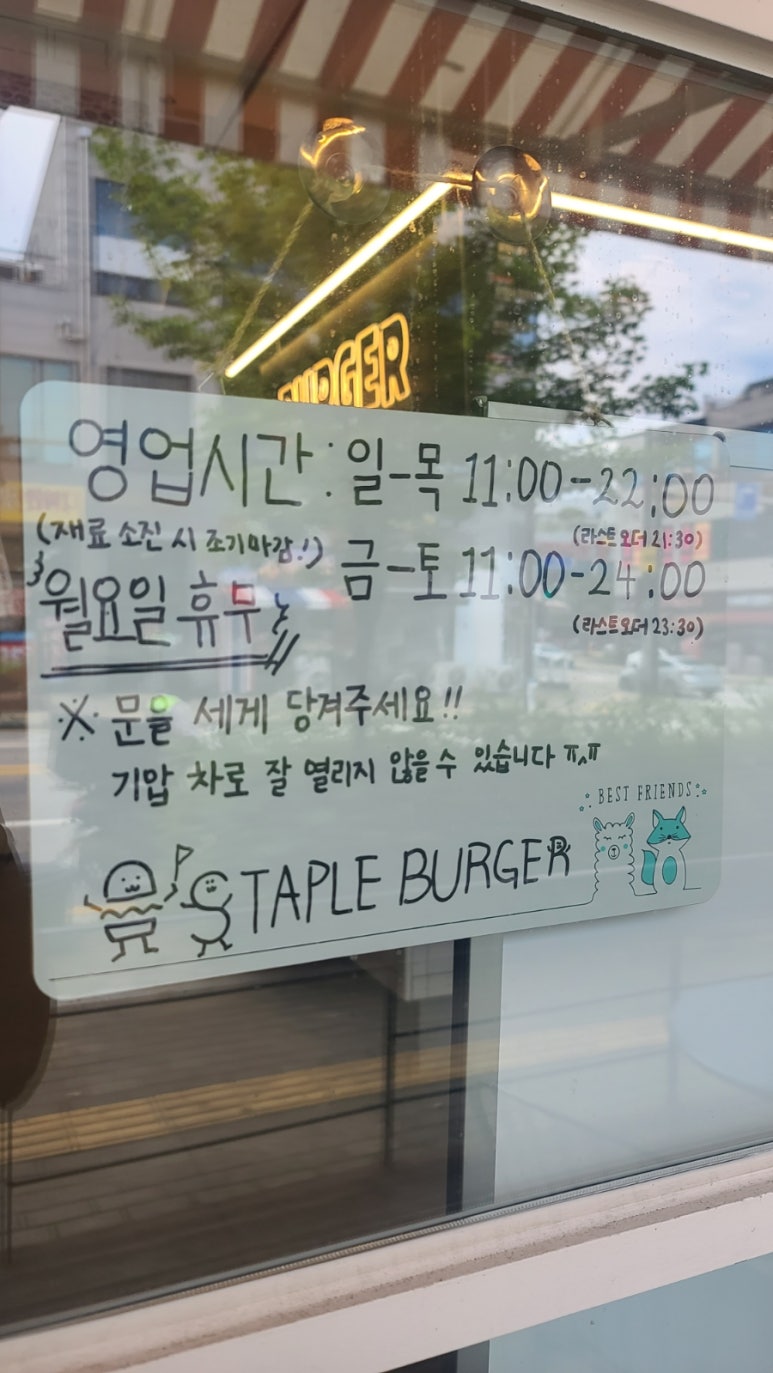 BURGER
영업시간 : 일-목 11:00-22:00
(재료 소진 시 조기마감!)
(라스트오더 21:30)
금-토 11:00-24:00
(라스트오더 23:30)
월요일 휴무
※ 문을 세게 당겨주세요!!
기압 차로 잘 열리지 않을 수 있습니다 ㅠㅅㅠ
BEST FRIENDS
STAPLE BURGER